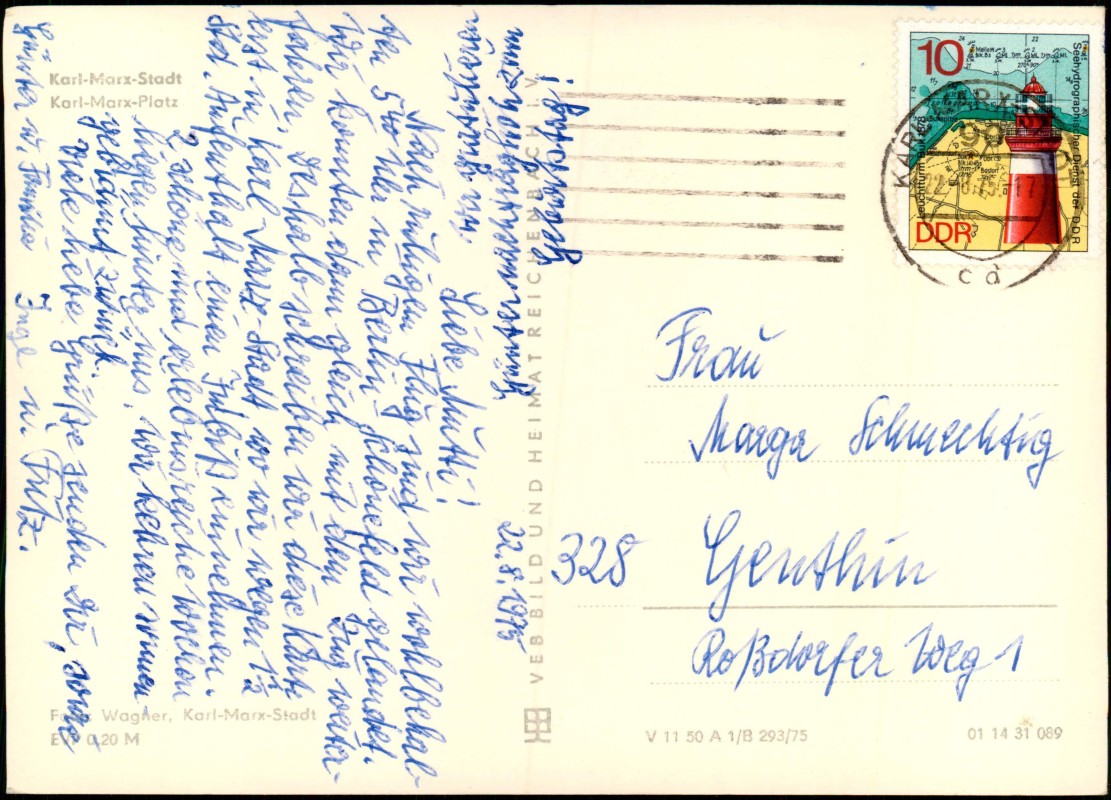 Karl-Marx-Stadt
Karl-Marx-Platz
22.8.1975
Liebe Mutti!
Nach ruhigem Flug sind wir wohlbehal-
ten 540 Uhr in Berlin-Schönefeld gelandet.
Wir konnten dann gleich mit dem Zug weiter-
fahren, deshalb schreiben wir diese Karte
erst in Karl-Marx-Stadt wo wir wegen 1½
Std. Aufenthalt einen Imbiß einnehmen.
2 und erlebnisreiche Wochen
liegen hinter uns, wir kehren
gebräunt zurück.
Viele liebe Grüße senden Dir, sowie
Günter u. Familie Inge u. Fritz.
Foto: Wagner, Karl-Marx-Stadt
EVP 0,20 M
VEB BILD UND HEIMAT REICHENBACH I. V.
V 11 50 A 1/B 293/75
01 14 31 089
10
Seehydrographischer Dienst der DDR
Leuchtturm
DDR
KARL-MARX-STADT
22.
75-17
cd
Frau
Marga Schmechtig
328 Genthin
Roßdorfer Weg 1